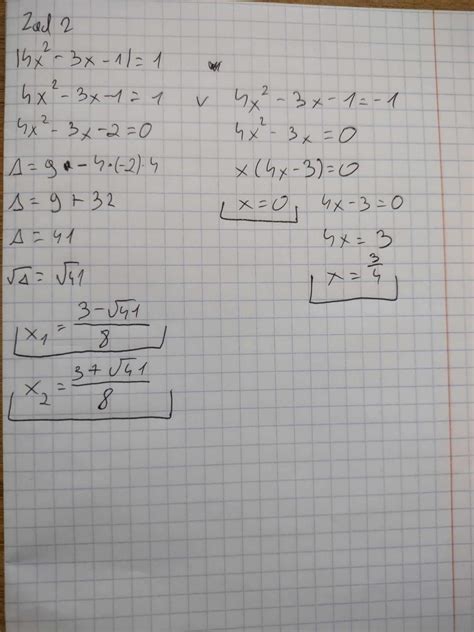 Zad 2
|4x² - 3x - 1| = 1
4x² - 3x - 1 = 1 v 4x² - 3x - 1 = -1
4x² - 3x - 2 = 0
Δ = 9 - 4·(-2)·4
Δ = 9 + 32
Δ = 41
√Δ = √41
x₁ = (3 - √41)/8
x₂ = (3 + √41)/8
4x² - 3x = 0
x(4x - 3) = 0
x = 0 4x - 3 = 0
4x = 3
x = 3/4